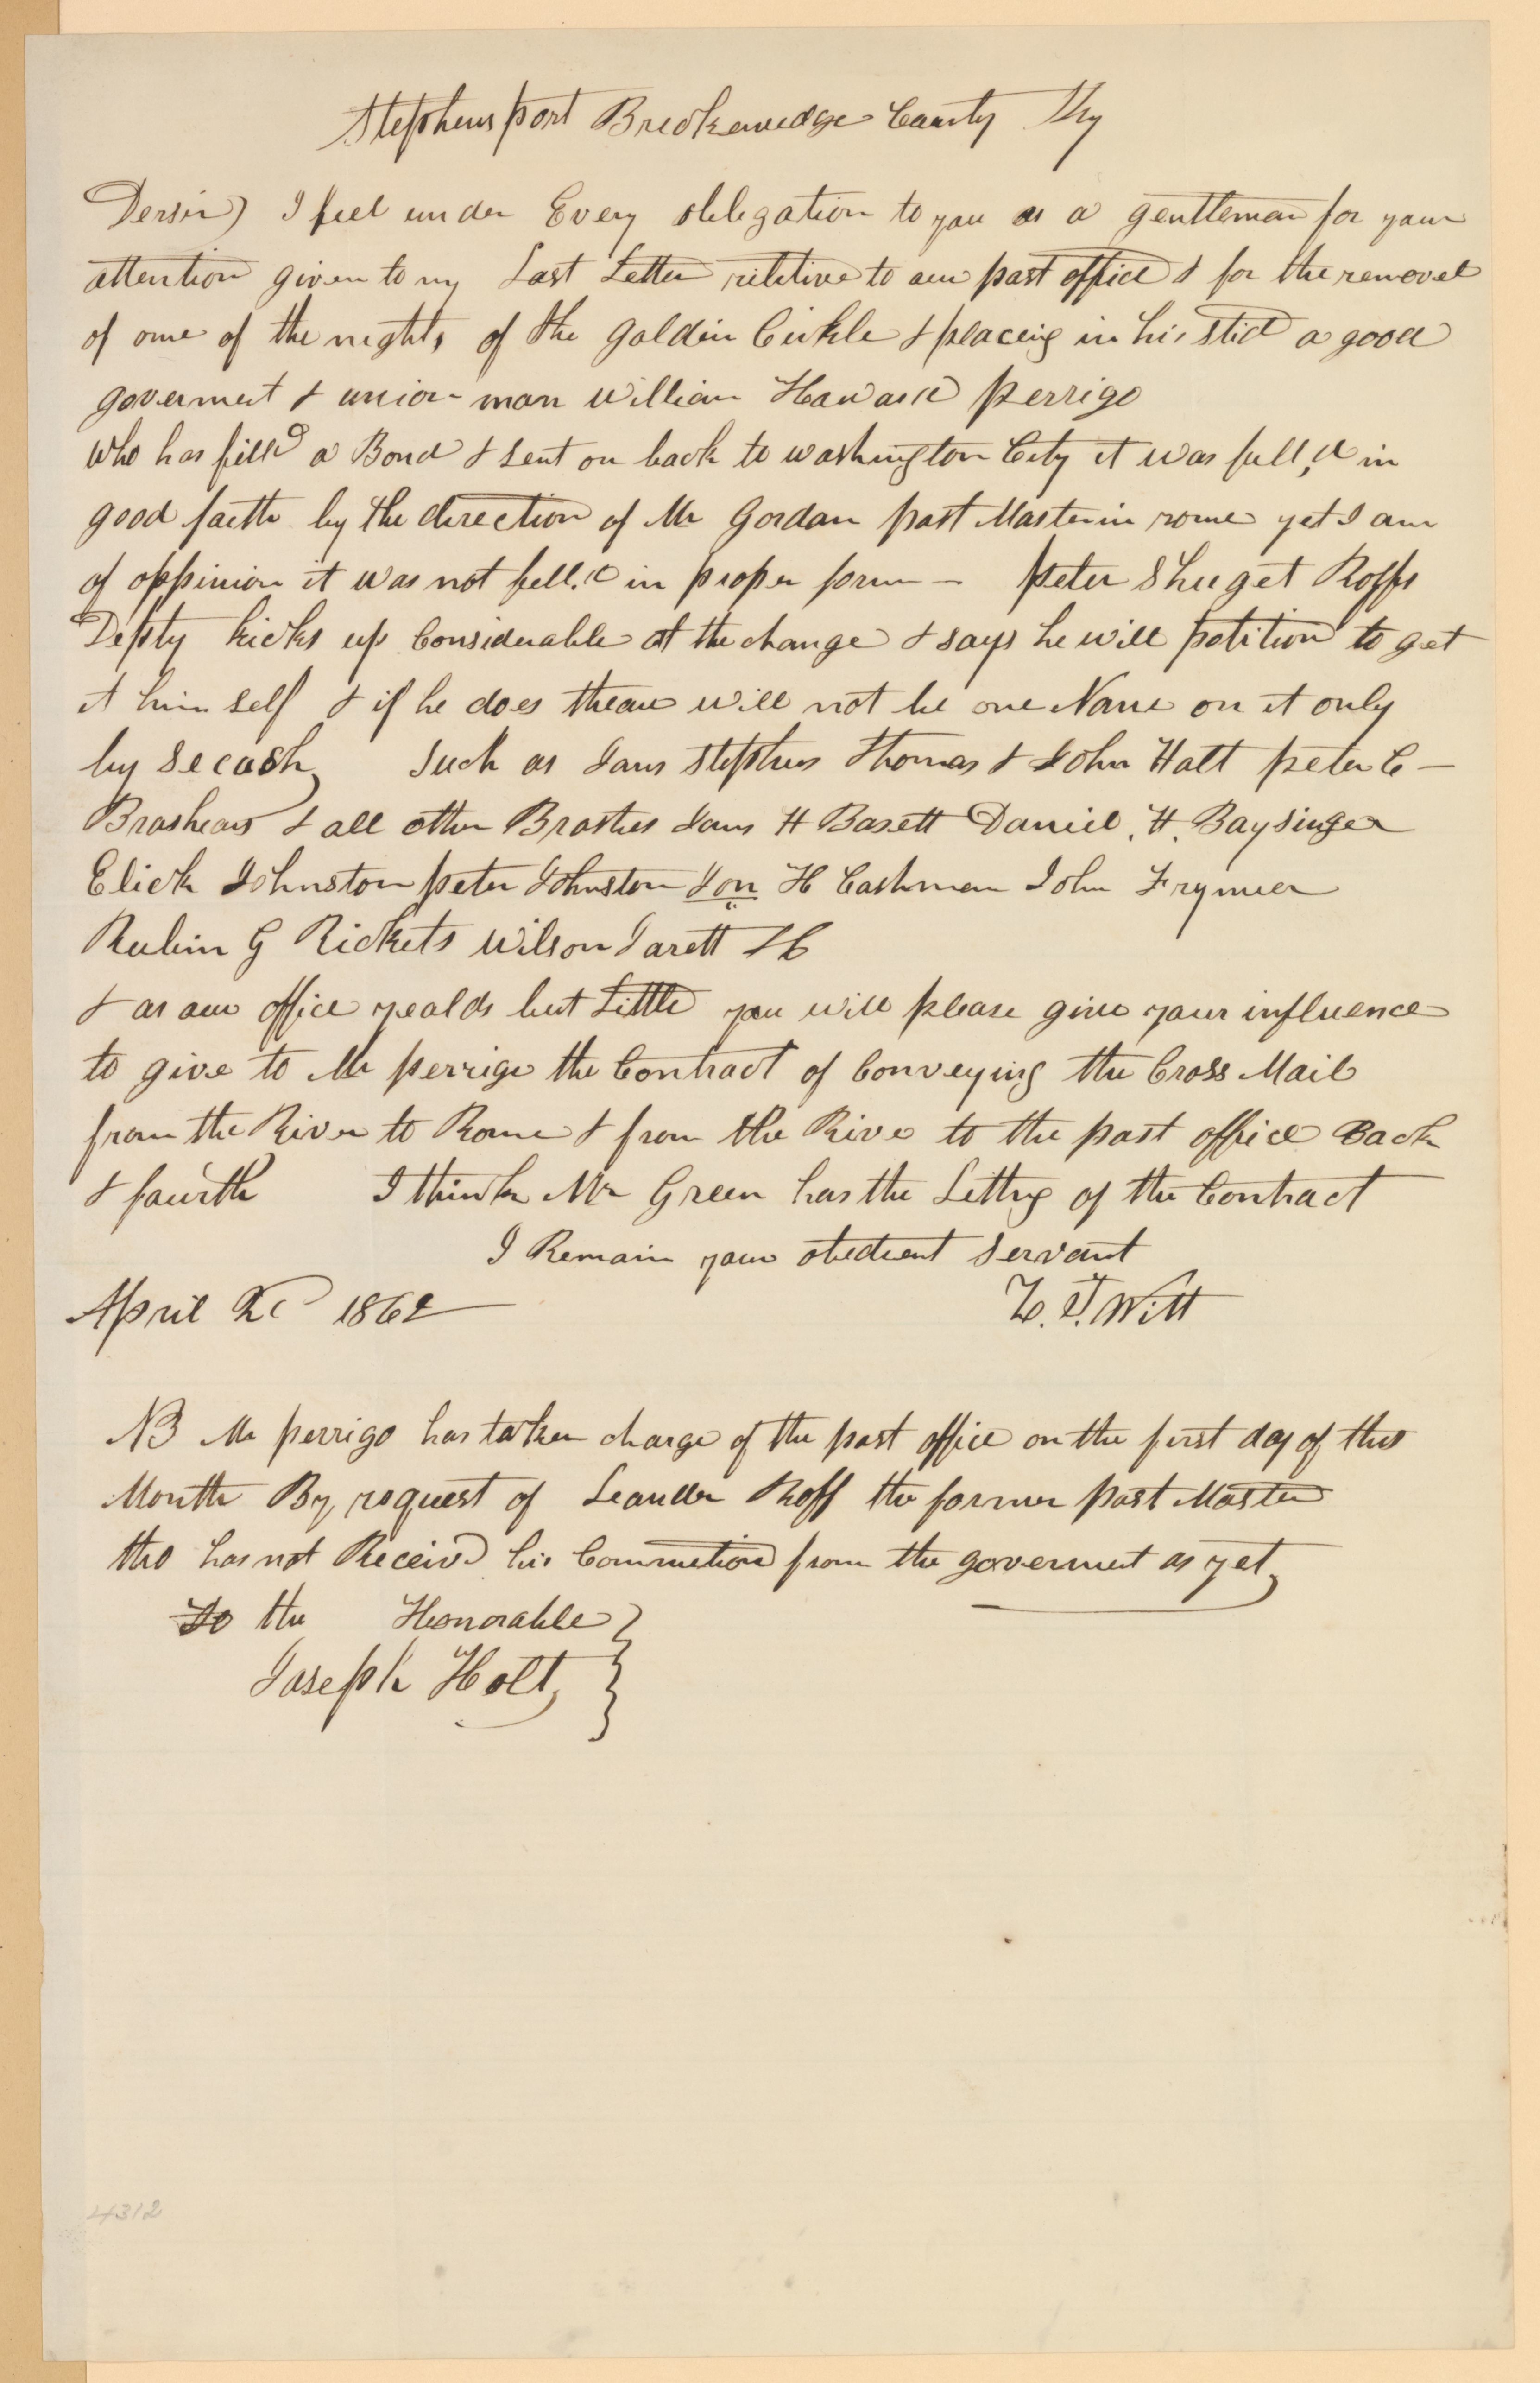 Stephensport Breckenredge County Ky
Dersir) I feel under Every obligation to you as a gentleman for your
attention given to my Last Letter relitive to our post office & for the removel
of one of the nights of the golden Cirkle & placeing in his stid a good
goverment & union man William Haward perrigo
who has filld a Bond & sent on back to washington City it was fill,d in
good faith by the direction of Mr Gordan post Master in rome yet I am
of oppinion it was not fill.d in proper form — Peter Shuget Roffs
Depty kicks up Considerable at the change & says he will petition to get
it him self & if he does theare will not be one Name on it only
by secash, such as Jams Stephens Thomas & John Hatt peter C —
Brashears & all other Jams H Basett Daniel. H. Baysinger
Elick Johnston peter Johnston Jon H Cashman John Frymier
Rubin G Rickets Wilson Jarett & C
& as our office yealds but Little you will please give your influence
to give to Mr perrigo the Contract of Conveying the Cross Mail
from the River to Rome & from the Rive to the post office Back
& fourth I think Mr Green has the Letting of the Contract
I Remain your obedient servant
April 1862 T. Witt
NB Mr perrigo has taken charge of the post office on the first day of this
Month By request of Leander Roff the former post Master
tho has not Receivd his from the goverment as yet,
To the Honorable
Joseph Holt,
4312